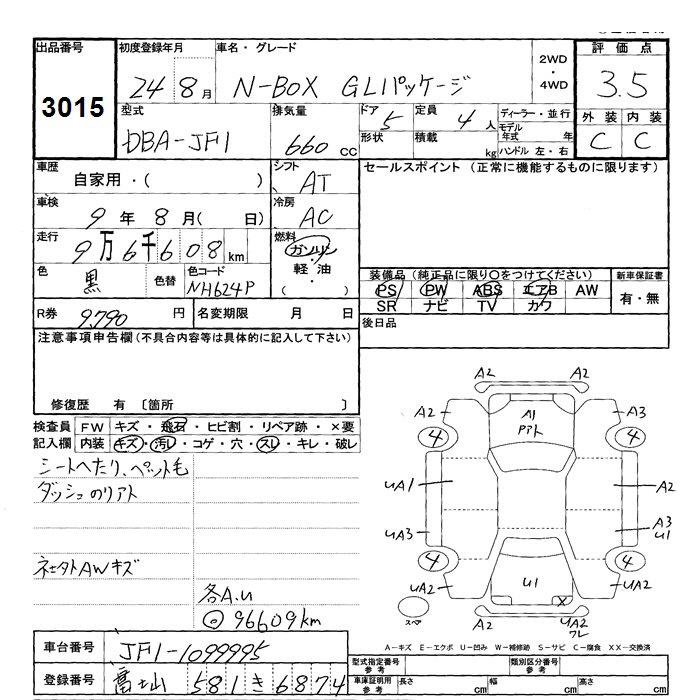 出品番号 初度登録年月 車名・グレード 2WD・4WD 評価点
3015 24 8月 N-BOX GLパッケージ 3.5
型式 排気量 ドア 5 定員 4人 ディーラー・並行 外装 内装
DBA-JF1 660cc 形状 積載 kg モデル年式 年 ハンドル 左・右 C C
車歴 シフト セールスポイント (正常に機能するものに限ります)
自家用・( ) AT
車検 9年8月( 日) 冷房 AC
走行 9万6千608km 燃料 ガソリン・軽油・( )
色 黒 色替 色コード NH624P
装備品(純正品に限り○をつけてください) 新車保証書
PS PW ABS エアB AW 有・無
SR ナビ TV カワ
R券 9,790円 名変期限 月 日 後日品
注意事項申告欄(不具合内容等は具体的に記入して下さい)
修復歴 有 〔箇所 〕
検査員 FW キズ・飛石・ヒビ割・リペア跡・×要
記入欄 内装 キズ・汚レ・コゲ・穴・スレ・キレ・破レ
シートヘタリ、ペット毛
ダッシュのリアト
AWキズ
各A.u
◎96609km
A2
A2 A1 A3
4 4
UA1 A2
UA3 A3 U1
4 4
UA2 U1 X UA2
スペア A2 UA2 ワレ
A-キズ E-エクボ U-凹み W-補修跡 S-サビ C-腐食 XX-交換済
車台番号 JF1-1099995
型式指定番号 参考 類別区分番号 参考
登録番号 富士山 581 き 6874
車庫証明用 参考 長さ cm 幅 cm 高さ cm